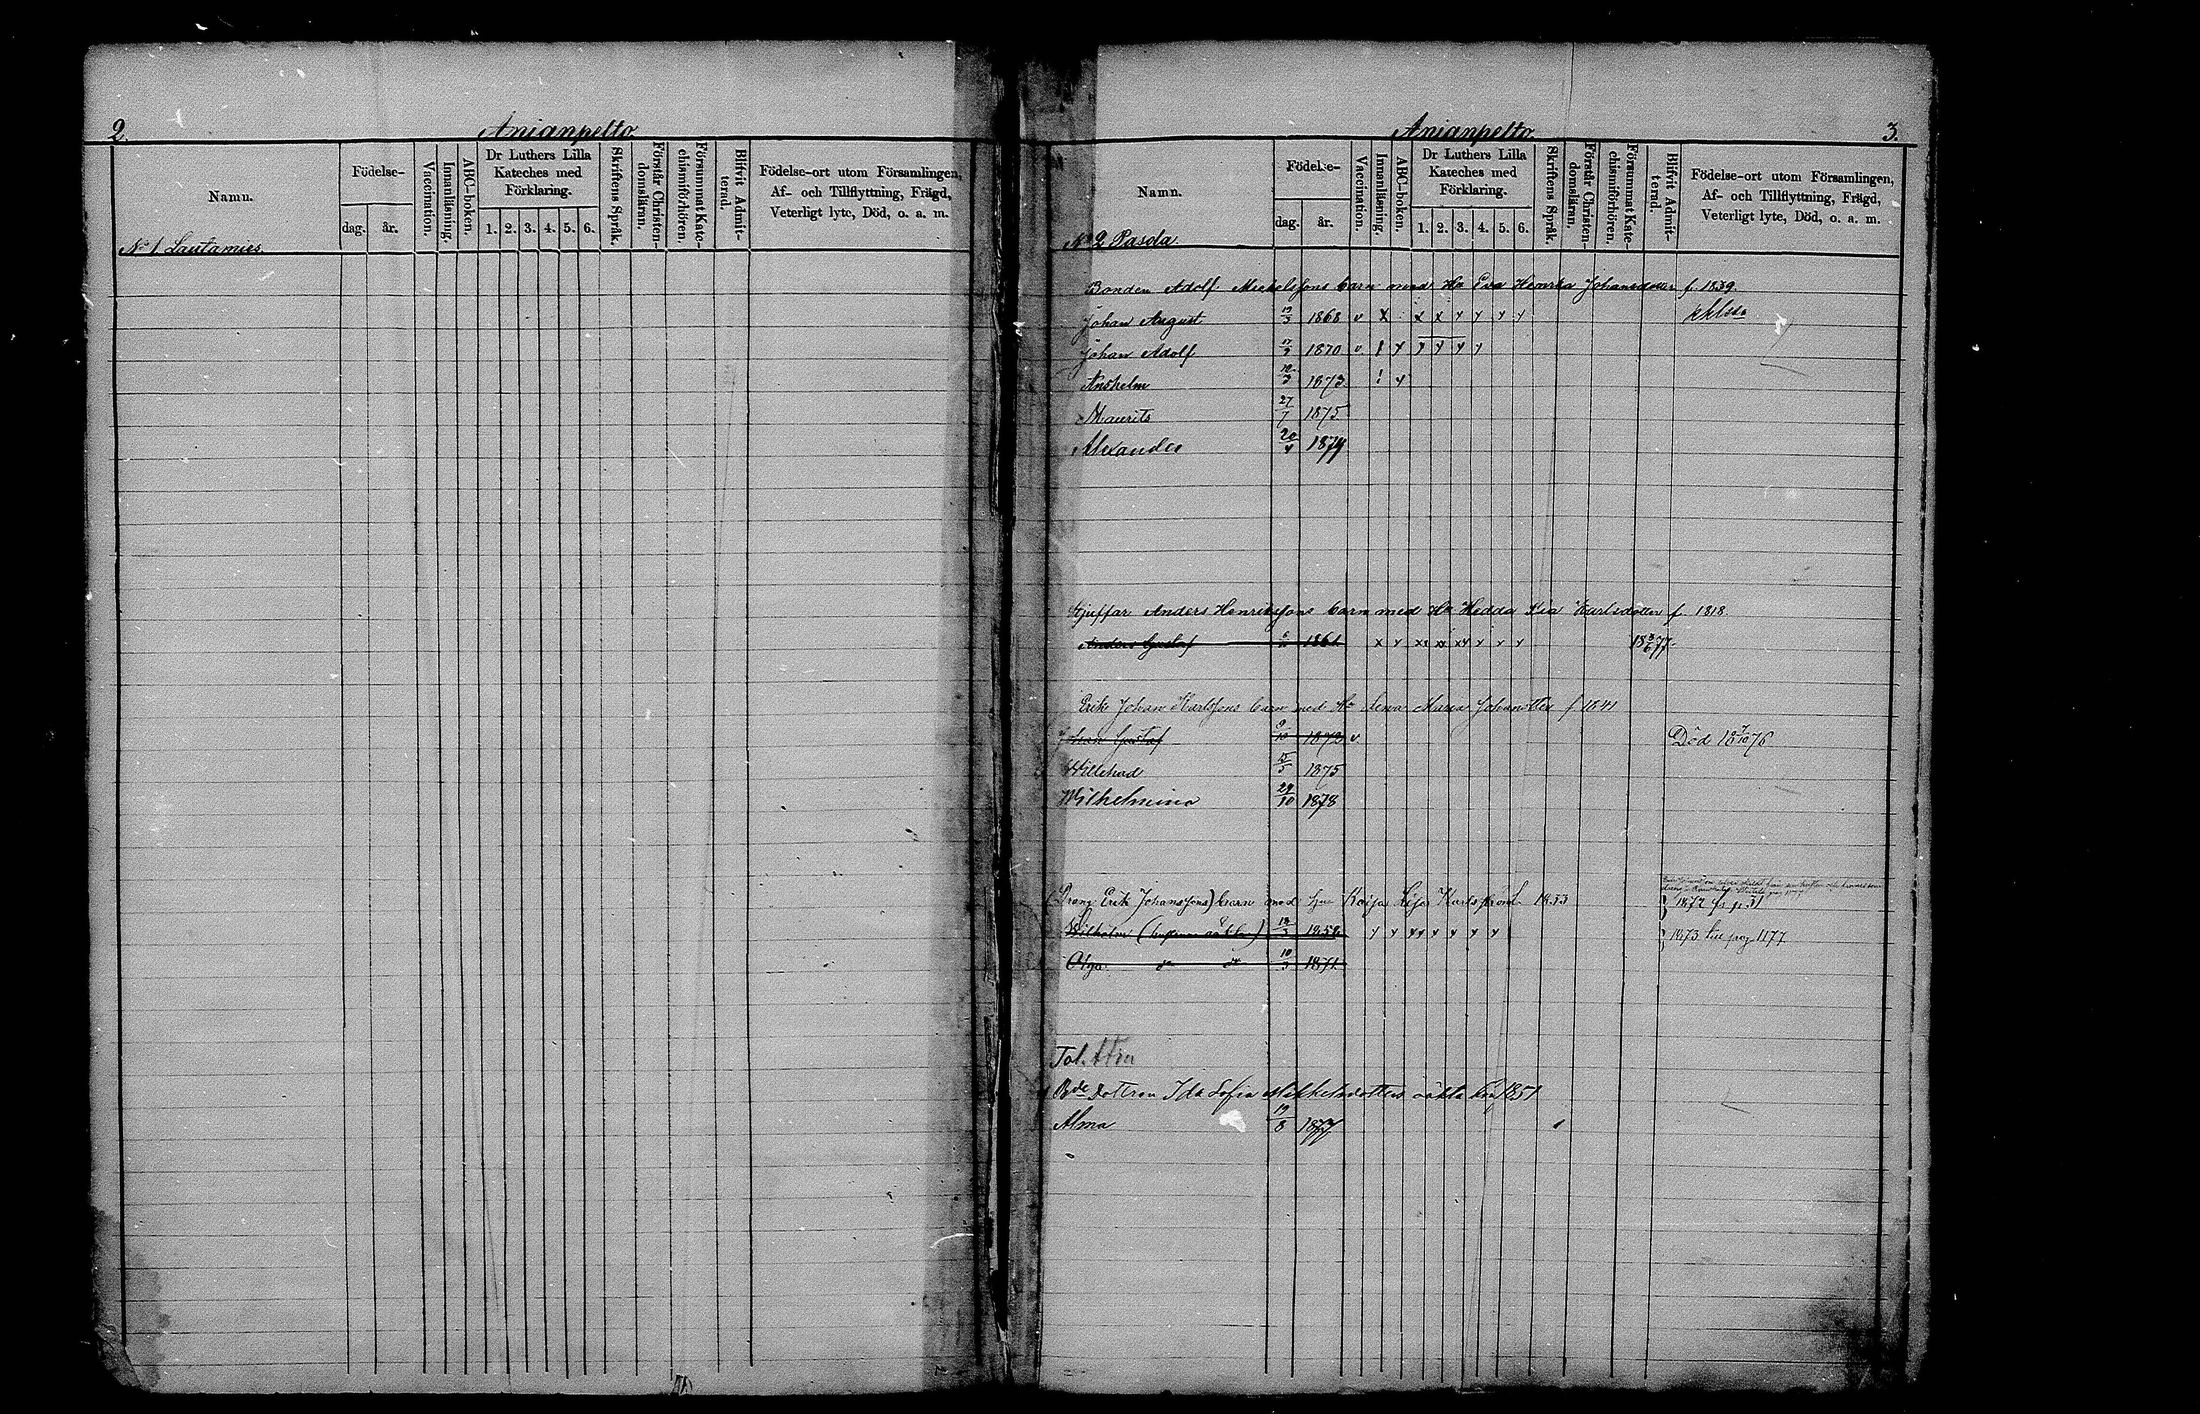 2.
Anianpelto
Namn.
Födelse-
dag.
år.
Vaccination.
Innanläsning.
ABC-boken.
Dr Luthers Lilla
Kateches med
Förklaring.
1. 2. 3. 4. 5. 6.
Skriftens Språk.
Förstår Christen-
domsläran.
Försummat Kate-
chismiförhören.
Blifvit Admit-
terad.
Födelse-ort utom Församlingen,
Af- och Tillflyttning, Frägd,
Veterligt lyte, Död, o. a. m.
No 1 Lautamies.
Anianpelto.
3.
Namn.
Födelse-
dag.
år.
Vaccination.
Innanläsning.
ABC-boken.
Dr Luthers Lilla
Kateches med
Förklaring.
1. 2. 3. 4. 5. 6.
Skriftens Språk.
Förstår Christen-
domsläran.
Försummat Kate-
chismiförhören.
Blifvit Admit-
terad.
Födelse-ort utom Församlingen,
Af- och Tillflyttning, Frägd,
Veterligt lyte, Död, o. a. m.
No 2 Pasola.
Bonden Adolf Mickelssons barn med Ha Eva Henrika Johansdotter f. 1839.
Johan August 1868 v x x x y y y y
Johan Adolf 1870 v y y y y y
Anshelm 1873 ! y
Maurits 27/7 1875
Alexander 20/4 1879
Gjuffar Anders Henrikssons barn med Ha Hedda Lisa Karlsdotter f. 1818.
Anders Gustaf 1861 x y xx xx xy y y y 18 77.
Erik Johan Karlssons barn med Ha Lena Maria Johansdotter f 1841
Johan Gustaf 9/10 1872 v Död 18 7/10 76
Willehad 15/5 1875
Wilhelmina 29/10 1878
(Dräng Erik Johanssons) barn med hu Kaisa Lisa Karlsdotter 1833
1872 fr p. 31
Wilhelm y y yy y y y 1873 till pag 1177
Olga do do 10/3 1871
Tol.
Bde Dottren Ida Sofia Mikkelsdotters oäkta f. 1851
Alma 19/8 1877